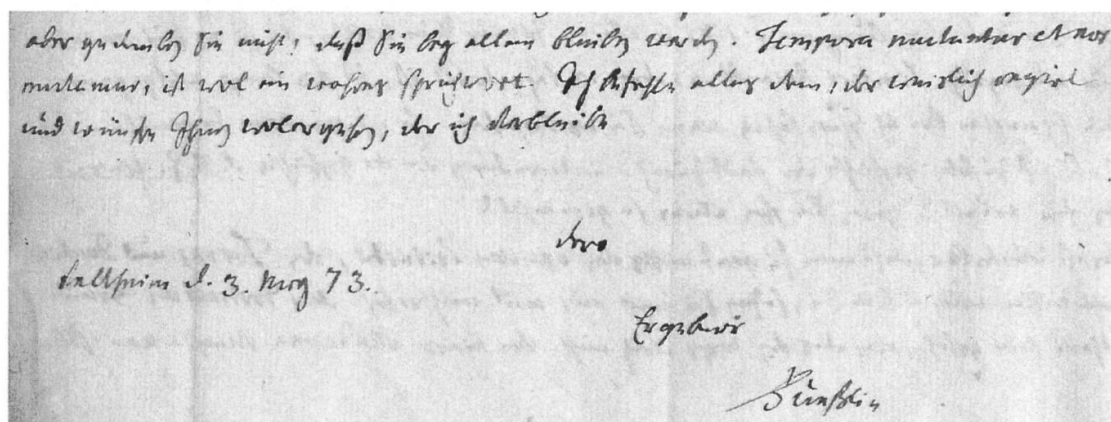 aber gedencken Sie nicht, daß Sie bey allem bleiben werde. Tempora mutantur et nos
mutamur, ist wol ein wahres Sprichwort. Ich befehle alles dem, der weislich regiert
und wünsche Ihnen wolergehen, der ich verbleibe
Dero
Fellheim d. 3. Merz 73.
Ergebner